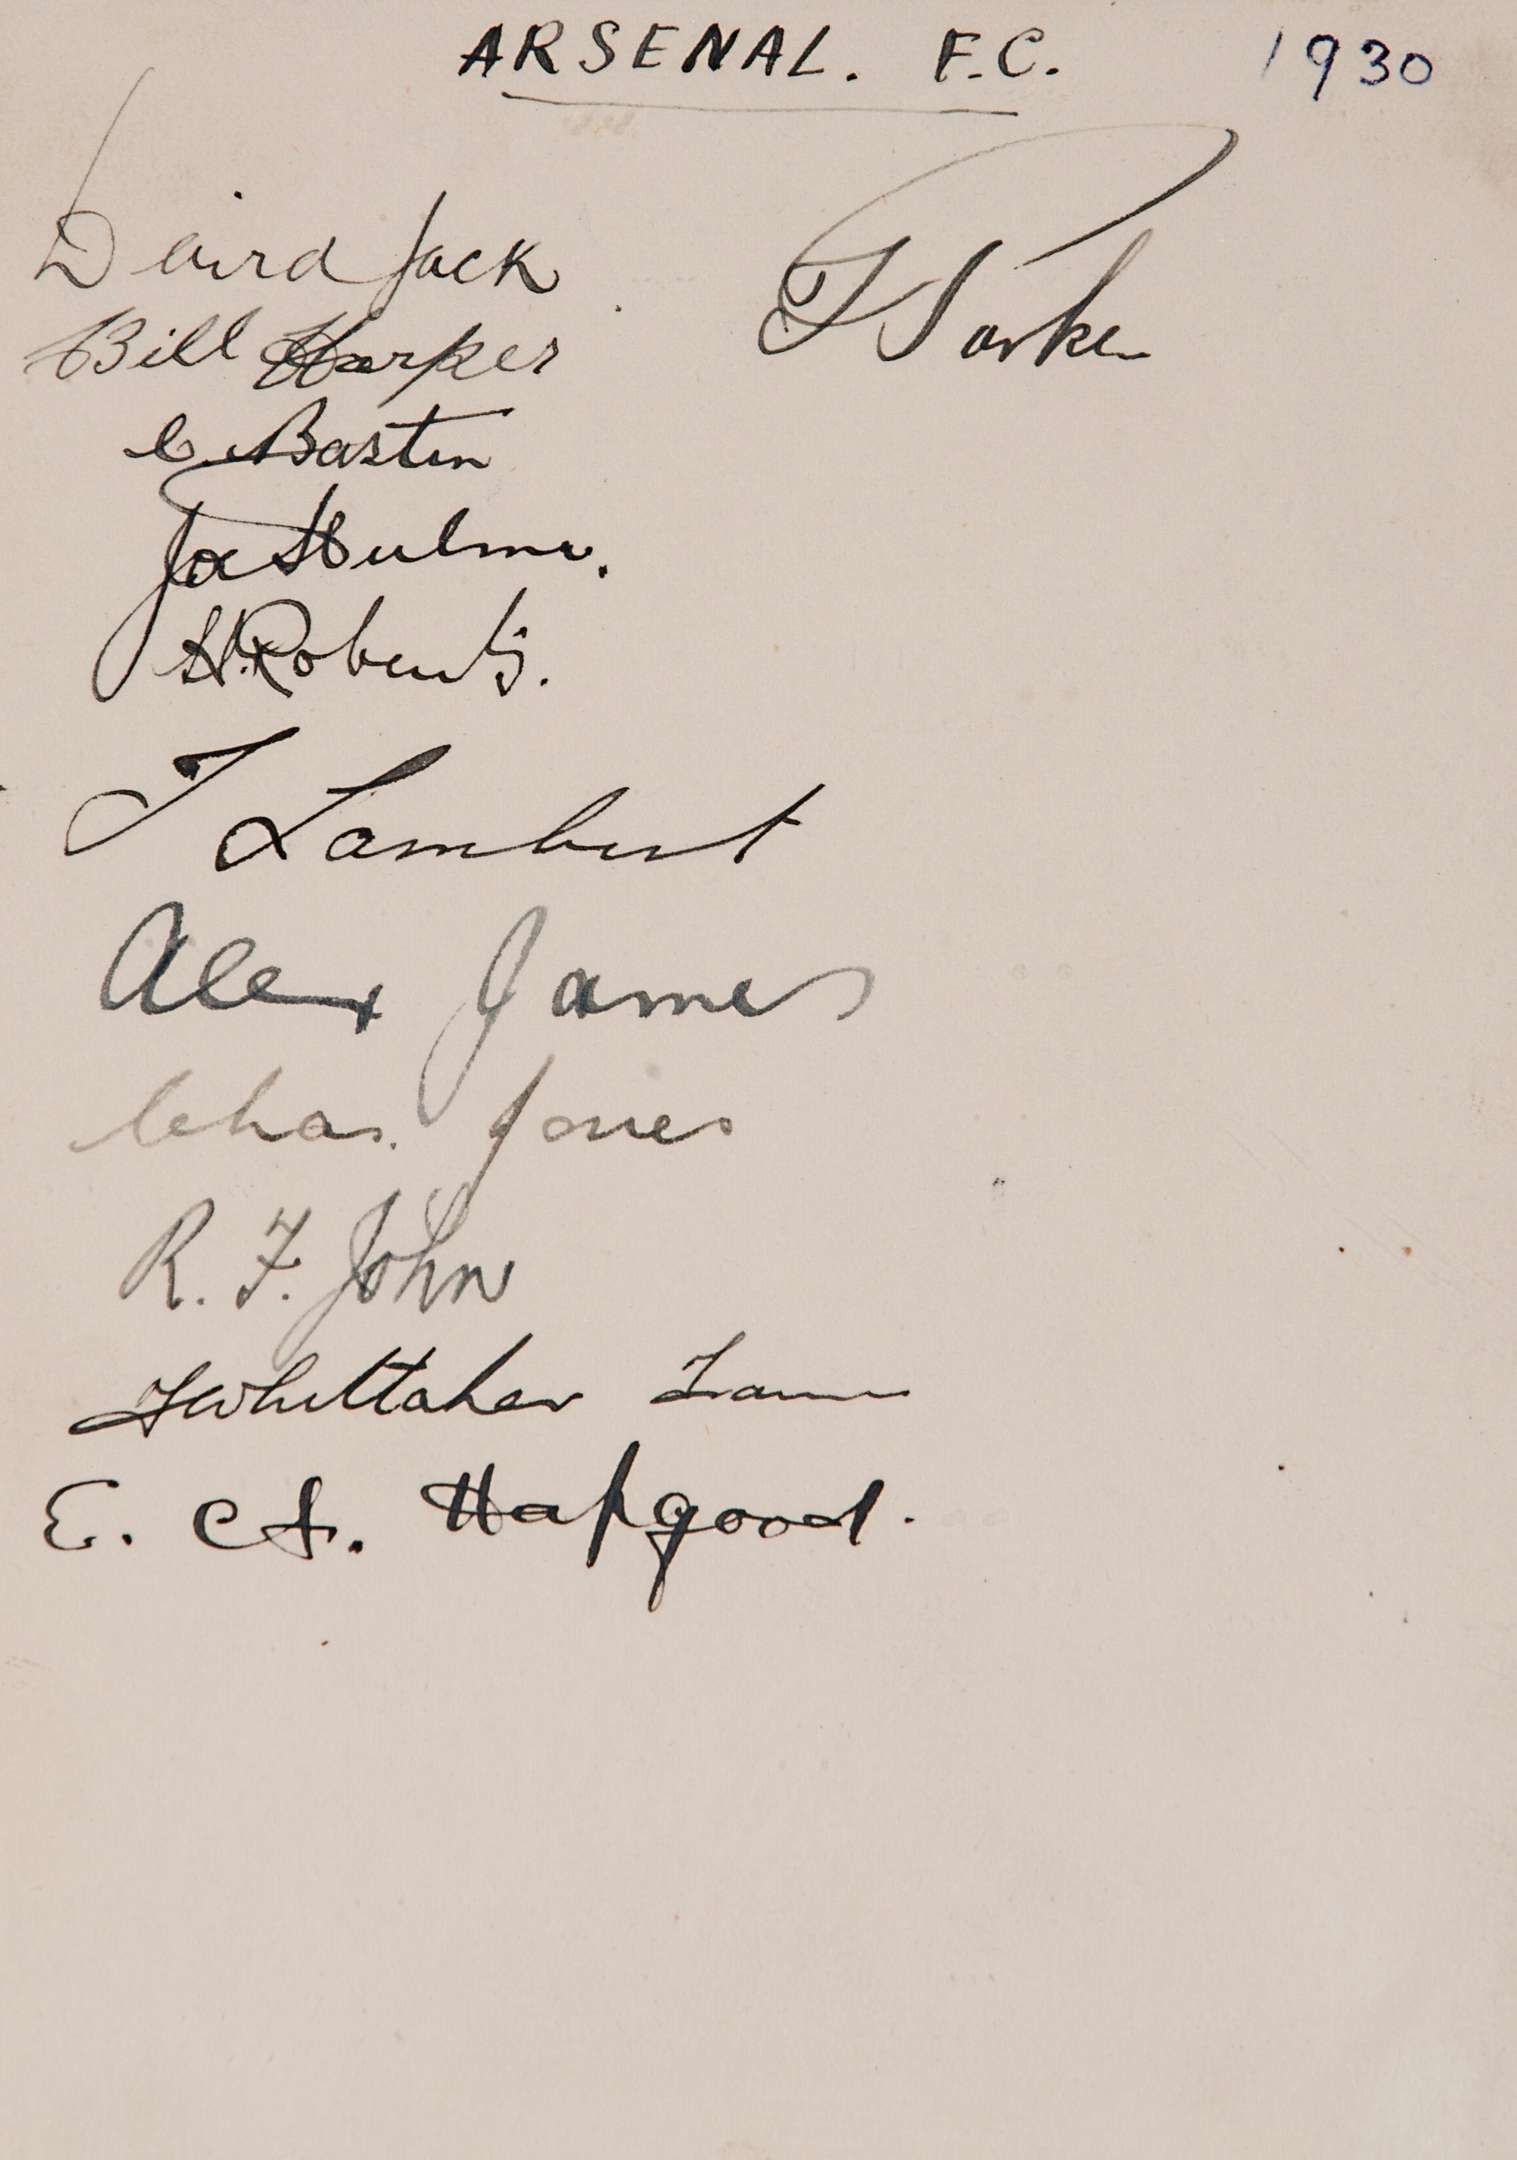 ARSENAL. F.C. 1930
David Jack
T Parker
Bill Harper
C. Bastin
Joe Hulme.
H. Roberts.
J Lambert
Alex James
Chas. Jones
R. F. John
J Whittaker
E. A. Hapgood.